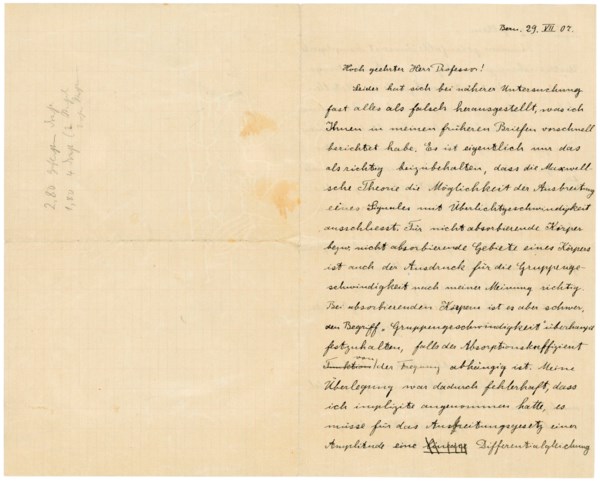 Bern. 29. VII 07.
Hoch geehrter Herr Professor!
Leider hat sich bei näherer Untersuchung
fast alles als falsch herausgestellt, was ich
Ihnen in meinen früheren Briefen vorschnell
berichtet habe. Es ist eigentlich nur das
als richtig beizubehalten, dass die Maxwell-
sche Theorie die Möglichkeit der Ausbreitung
eines Signales mit Überlichtgeschwindigkeit
ausschliesst. Für nicht absorbierende Körper
bezw. nicht absorbierende Gebiete eines Körpers
ist auch der Ausdruck für die Gruppenge-
schwindigkeit nach meiner Meinung richtig.
Bei absorbierenden Körpern ist es aber schwer,
den Begriff „Gruppengeschwindigkeit" überhaupt
festzuhalten, falls der Absorptionskoeffizient
Funktion von der Frequenz abhängig ist. Meine
Überlegung war dadurch fehlerhaft, dass
ich implizite angenommen hatte, es
müsse für das Ausbreitungsgesetz einer
Amplitude eine Differentialgleichung
2,80
1,80 4